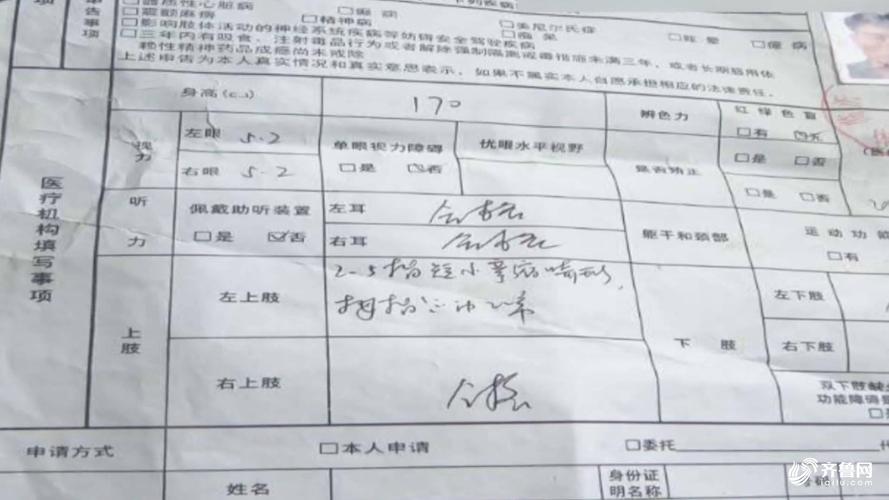 器质性心脏病
癫痫
美尼尔氏症
眩晕
癔病
震颤麻痹
精神病
痴呆
影响肢体活动的神经系统疾病等妨碍安全驾驶疾病
三年内有吸食、注射毒品行为或者解除强制隔离戒毒措施未满三年，或者长期服用依
赖性精神药品成瘾尚未戒除
上述申告为本人真实情况和真实意思表示，如果不属实本人自愿承担相应的法律责任。
申告事项
医疗机构填写事项
身高(cm)
170
辨色力
红绿色盲
□有 ☑无
视力
左眼 5.2
单眼视力障碍
□是 ☑否
优眼水平视野
是否矫正
□是 □否
右眼 5.2
□是 □否
听力
佩戴助听装置
□是 ☑否
左耳 合格
右耳 合格
躯干和颈部
运动功能
□有
上肢
左上肢
2-5指短小
拇指
右上肢
合格
下肢
左下肢
右下肢
双下肢缺
功能障碍
申请方式
□本人申请
□委托
代
姓名
身份证
明名称
齐鲁网
iqilu.com